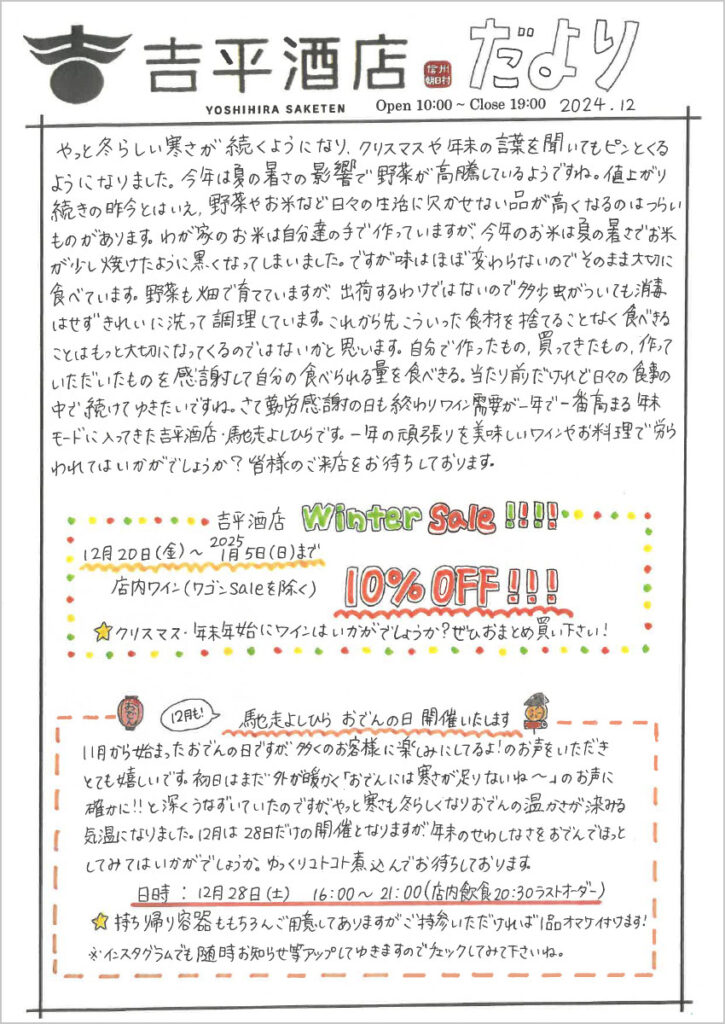 吉平酒店 信州朝日村 だより
YOSHIHIRA SAKETEN Open 10:00 ~ Close 19:00 2024.12
やっと冬らしい寒さが続くようになり、クリスマスや年末の言葉を聞いてもピンとくる
ようになりました。今年は夏の暑さの影響で野菜が高騰しているようですね。値上がり
続きの昨今とはいえ、野菜やお米など日々の生活に欠かせない品が高くなるのはつらい
ものがあります。わが家のお米は自分達の手で作っていますが、今年のお米は夏の暑さでお米
が少し焼けたように黒くなってしまいました。ですが味はほぼ変わらないのでそのまま大切に
食べています。野菜も畑で育てていますが、出荷するわけではないので多少虫がついても消毒
はせずきれいに洗って調理しています。これから先こういった食材を捨てることなく食べきる
ことはもっと大切になってくるのではないかと思います。自分で作ったもの、買ってきたもの、作って
いただいたものを感謝して自分の食べられる量を食べきる。当たり前だけれど日々の食事の
中で続けてゆきたいですね。さて勤労感謝の日も終わりワイン需要が一年で一番高まる年末
モードに入ってきた吉平酒店・馳走よしひらです。一年の頑張りを美味しいワインやお料理で労ら
われてはいかがでしょうか?皆様のご来店をお待ちしております。
吉平酒店 Winter Sale!!!!
12月20日(金)~2025 1月5日(日)まで
店内ワイン(ワゴンSaleを除く) 10% OFF!!!
☆クリスマス・年末年始にワインはいかがでしょうか?ぜひおまとめ買い下さい!
おでん 12月も! 馳走よしひら おでんの日 開催いたします
11月から始まったおでんの日ですが、多くのお客様に楽しみにしてるよ!のお声をいただき
とても嬉しいです。初日はまだ外が暖かく「おでんには寒さが足りないね~」のお声に
確かに!!と深くうなずいていたのですが、やっと寒さも冬らしくなりおでんの温かさが染みる
気温になりました。12月は28日だけの開催となりますが、年末のせわしなさをおでんでほっと
してみてはいかがでしょうか。ゆっくりコトコト煮込んでお待ちしております。
日時:12月28日(土) 16:00~21:00(店内飲食20:30ラストオーダー)
☆持ち帰り容器ももちろんご用意してありますがご持参いただければ1品オマケ付けます!
※インスタグラムでも随時お知らせ等アップしてゆきますのでチェックしてみて下さいね。